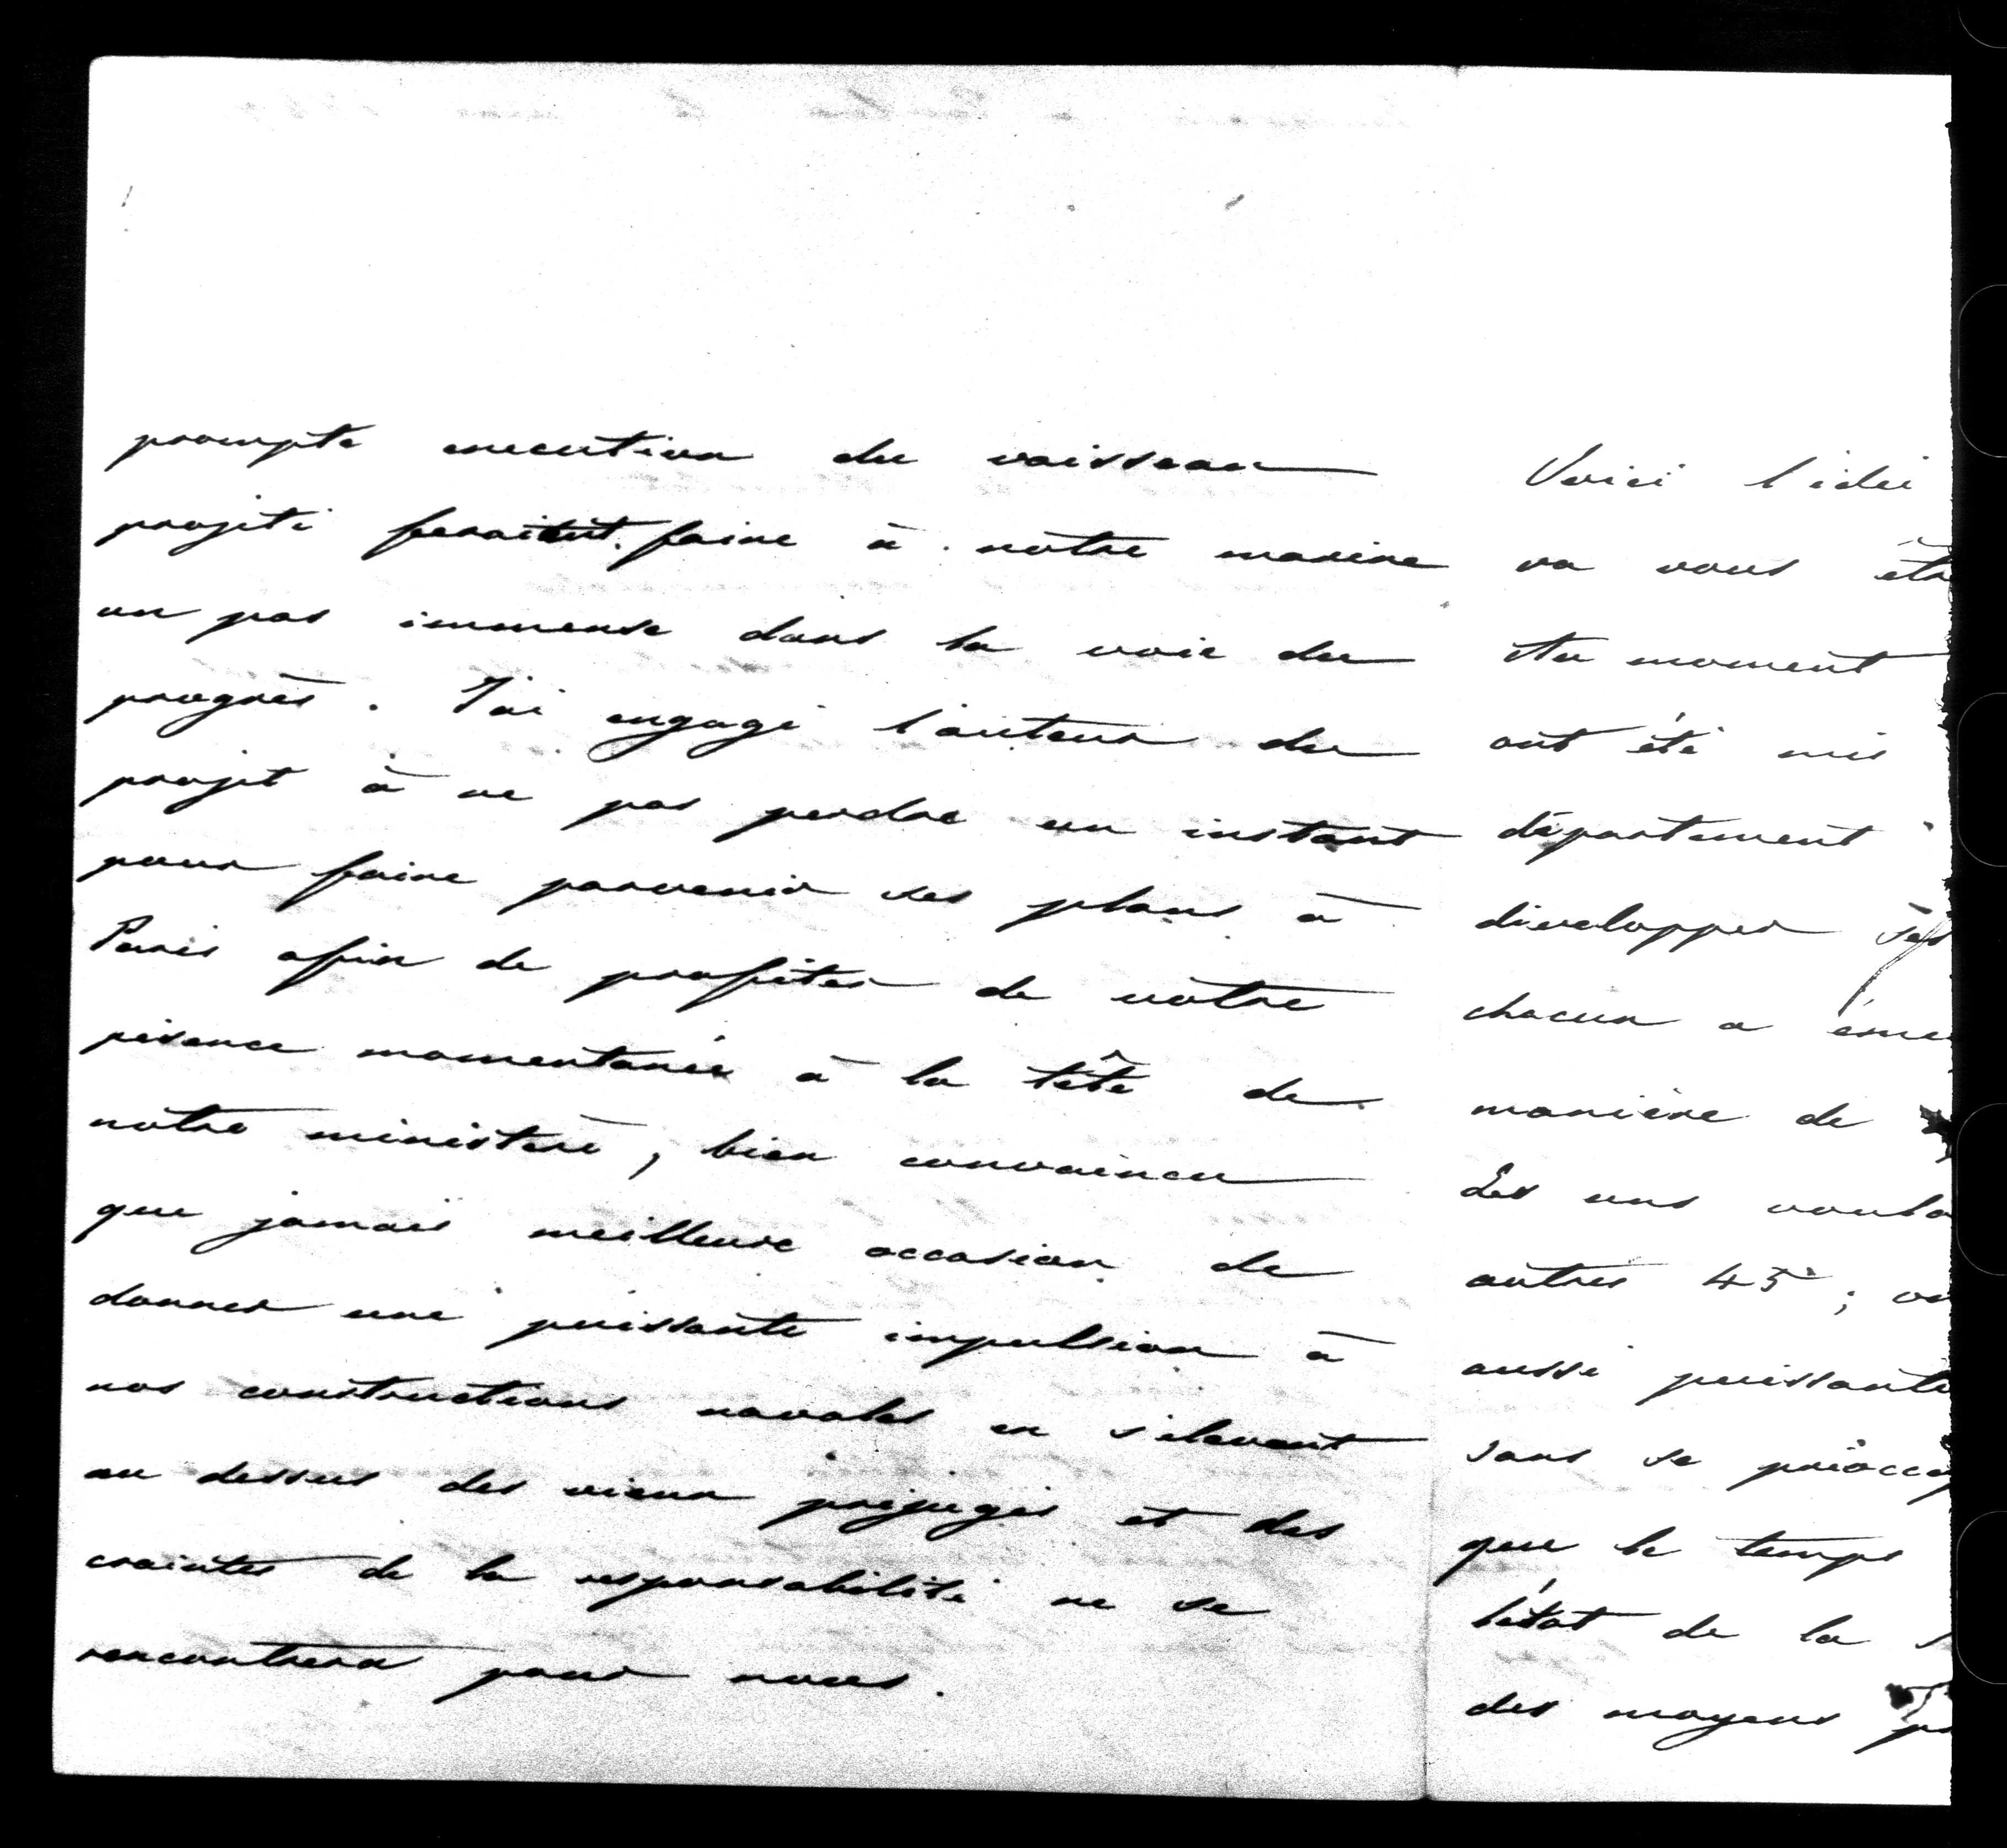 prompte execution du vaisseau
projeté feraient faire à notre marine
un pas immense dans la voie du
progrès. J'ai engagé l'auteur du
projet à ne pas perdre un instant
pour faire parvenir ses plans à
Paris afin de profiter de votre
présence momentanée à la tête de
notre ministère, bien convaincu
que jamais meilleure occasion de
donner une puissante impulsion à
nos constructions navales en s'élevant
au dessus des vieux préjugés et des
craintes de la responsabilité ne se
rencontrera pour nous.
Voici l'idé
va vous êtr
du moment
ont été mis
département
développer ses
chacun a éme
manière de
Les uns voula
autres 45; on
aussi puissante
sans se préoccup
que le temps
l'état de la
des moyens